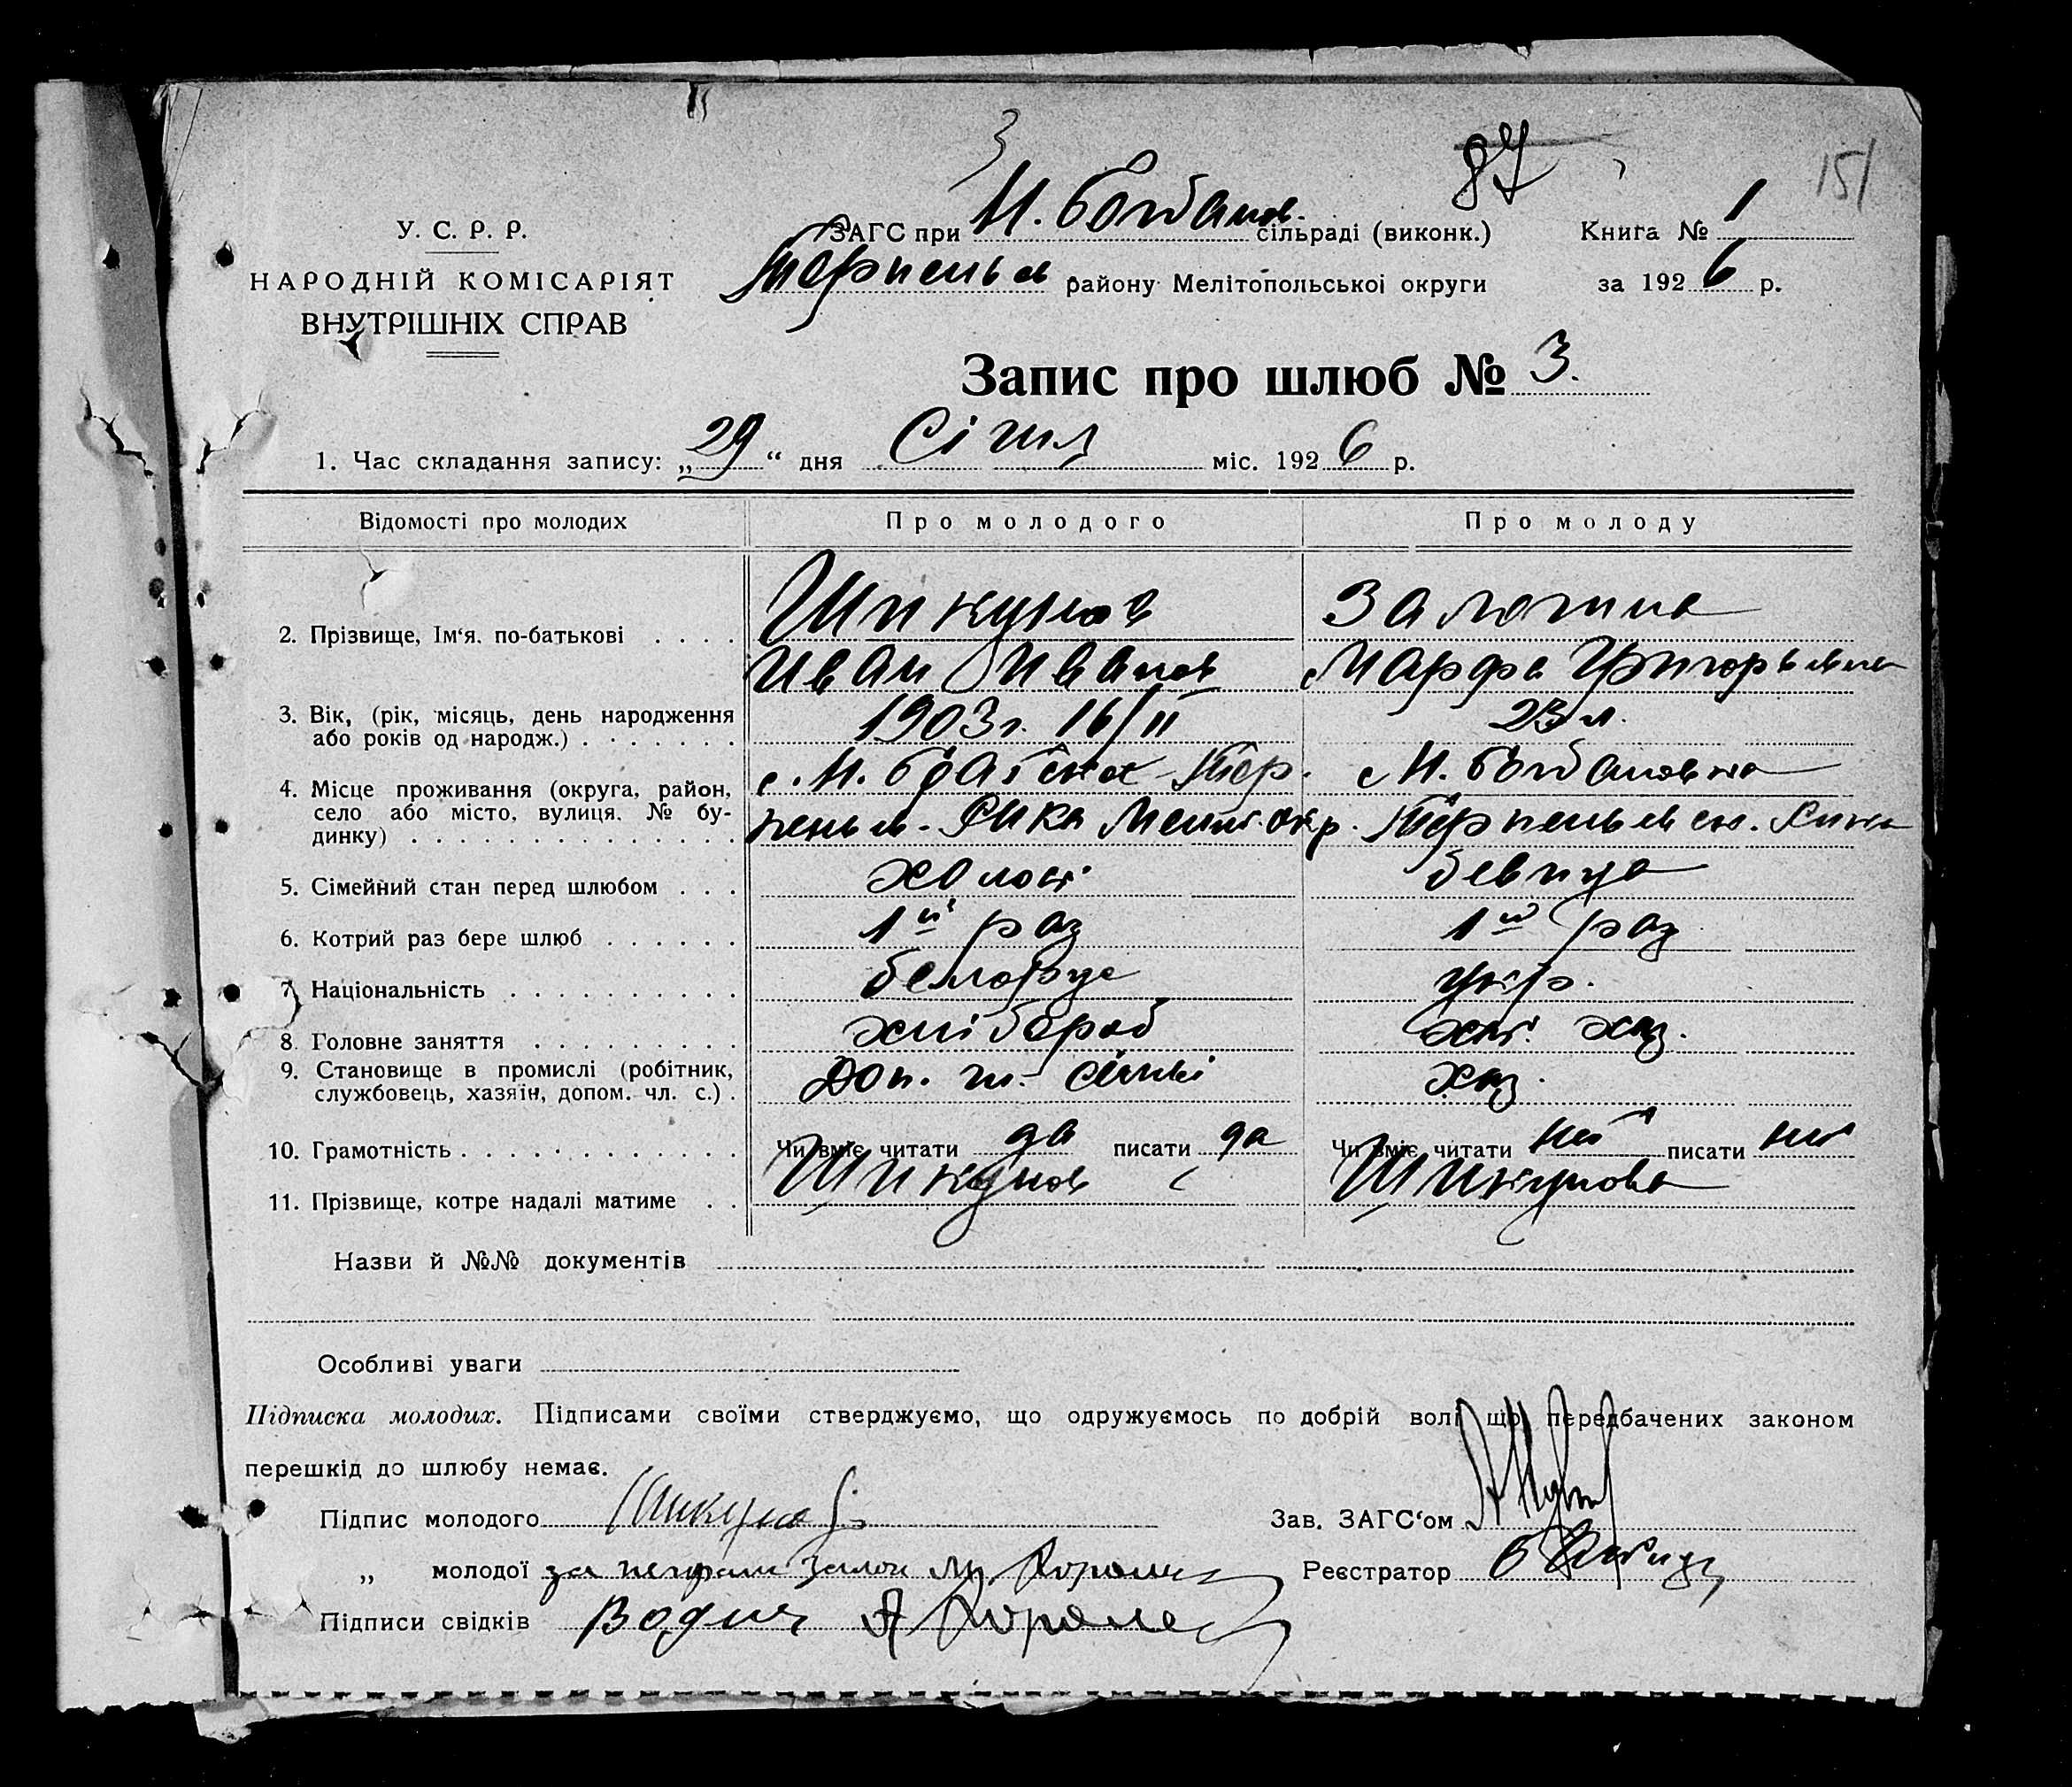 3
87
151
У. С. Р. Р.
НАРОДНІЙ КОМІСАРІЯТ
ВНУТРІШНІХ СПРАВ
ЗАГС при Н. Богданов. сільраді (виконк.)
Книга № 1
Терпеньев району Мелітопольської округи
за 1926 р.
Запис про шлюб № 3.
1. Час складання запису: „29“ дня Січня міс. 1926 р.
Відомості про молодих Про молодого Про молоду
2. Прізвище, Ім'я. по-батькові . . . . Шикунов
Иван Иванов Марфа Григорьевна
3. Вік, (рік, місяць, день народження 1903 г. 16/II 23 л.
або років од народж.) . . . . . . .
4. Місце проживання (округа, район, с. Н. Терп. с Н. Богдановка
село або місто, вулиця, № бу- пеньев. Р-ика Мелит. окр. Терпеньевск. Р-ика
динку) . . . . . . . . . . . . . .
5. Сімейний стан перед шлюбом . . . холост девица
6. Котрий раз бере шлюб . . . . . . 1й раз 1й раз
7. Національність . . . . . . . . . . белорус укр.
8. Головне заняття . . . . . . . . . хлібороб хаз.
9. Становище в промислі (робітник, Доп. чл. сімьі хаз.
службовець, хазяїн, допом. чл. с.) .
10. Грамотність . . . . . . . . . . . . Чи вміє читати да писати да Чи вміє читати нет писати нет
11. Прізвище, котре надалі матиме . . Шикунов Шикунова
Назви й №№ документів
Особливі уваги
Підписка молодих. Підписами своїми стверджуємо, що одружуємось по добрій волі що передбачених законом
перешкід до шлюбу немає.
Підпис молодого Шикунов
Зав. ЗАГС'ом
„ молодої за неграм
Реєстратор
Підписи свідків